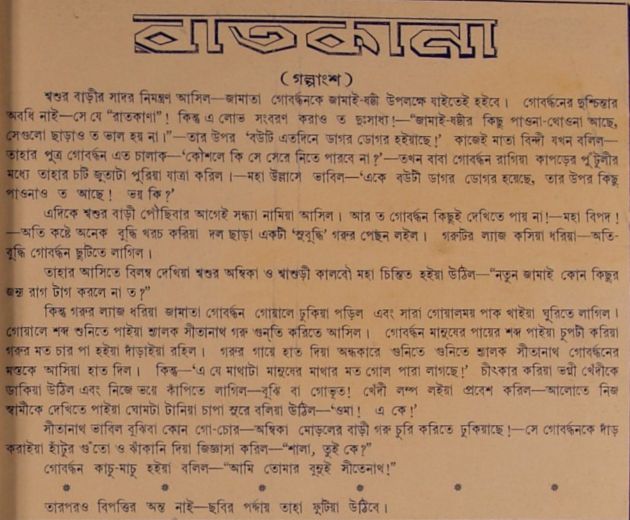 রাতকানা
(গল্পাংশ)
শ্বশুর বাড়ীর সাদর নিমন্ত্রণ আসিল—জামাতা গোবর্দ্ধনকে জামাই-ষষ্ঠী উপলক্ষে যাইতেই হইবে। গোবর্দ্ধনের দুশ্চিন্তার
অবধি নাই—সে যে “রাতকাণা”! কিন্তু এ লোভ সংবরণ করাও ত দুঃসাধ্য!—“জামাই-ষষ্ঠীর কিছু পাওনা-থোওনা আছে,
সেগুলো ছাড়াও ত ভাল হয় না।”—তার উপর ‘বউটি এতদিনে ডাগর ডোগর হইয়াছে!’ কাজেই মাতা বিন্দী যখন বলিল—
তাহার পুত্র গোবর্দ্ধন এত চালাক—‘কৌশলে কি সে সেরে নিতে পারবে না?’—তখন বাবা গোবর্দ্ধন রাগিয়া কাপড়ের পুঁটুলীর
মধ্যে তাহার চটি জুতাটা পুরিয়া যাত্রা করিল।—মহা উল্লাসে ভাবিল—‘একে বউটী ডাগর ডোগর হয়েছে, তার উপর কিছু
পাওনাও ত আছে! ভয় কি?’
এদিকে শ্বশুর বাড়ী পৌছিবার আগেই সন্ধ্যা নামিয়া আসিল। আর ত গোবর্দ্ধন কিছুই দেখিতে পায় না!—মহা বিপদ!
—অতি কষ্টে অনেক বুদ্ধি খরচ করিয়া দল ছাড়া একটী ‘সুবুদ্ধি’ গরুর পেছন লইল। গরুটির ল্যাজ কসিয়া ধরিয়া—অতি-
বুদ্ধি গোবর্দ্ধন ছুটিতে লাগিল।
তাহার আসিতে বিলম্ব দেখিয়া শ্বশুর অম্বিকা ও শ্বাশুড়ী কালবৌ মহা চিন্তিত হইয়া উঠিল—“নতুন জামাই কোন কিছুর
জন্য রাগ টাগ করলে না ত?”
কিন্তু গরুর ল্যাজ ধরিয়া জামাতা গোবর্দ্ধন গোয়ালে ঢুকিয়া পড়িল এবং সারা গোয়ালময় পাক খাইয়া ঘুরিতে লাগিল।
গোয়ালে শব্দ শুনিতে পাইয়া শ্যালক সীতানাথ গরু গুন্‌তি করিতে আসিল। গোবর্দ্ধন মানুষের পায়ের শব্দ পাইয়া চুপটী করিয়া
গরুর মত চার পা হইয়া দাঁড়াইয়া রহিল। গরুর গায়ে হাত দিয়া অন্ধকারে গুনিতে গুনিতে শ্যালক সীতানাথ গোবর্দ্ধনের
মস্তকে আসিয়া হাত দিল। কিন্তু—‘এ যে মাথাটা মানুষের মাথার মত গোল পারা লাগছে!’ চীৎকার করিয়া ভগ্নী খেঁদীকে
ডাকিয়া উঠিল এবং নিজে ভয়ে কাঁপিতে লাগিল—বুঝি বা গোভূত! খেঁদী লম্প লইয়া প্রবেশ করিল—আলোতে নিজ
স্বামীকে দেখিতে পাইয়া ঘোমটা টানিয়া চাপা সুরে বলিয়া উঠিল—‘ওমা! এ কে!’
সীতানাথ ভাবিল বুঝিবা কোন গো-চোর—অম্বিকা মোড়লের বাড়ী গরু চুরি করিতে ঢুকিয়াছে!—সে গোবর্দ্ধনকে দাঁড়
করাইয়া হাঁটুর গুঁতো ও ঝাঁকানি দিয়া জিজ্ঞাসা করিল—“শালা, তুই কে?”
গোবর্দ্ধন কাচু-মাচু হইয়া বলিল—“আমি তোমার বুনুই সীতেনাথ!”
তারপরও বিপত্তির অন্ত নাই—ছবির পর্দ্দায় তাহা ফুটিয়া উঠিবে।